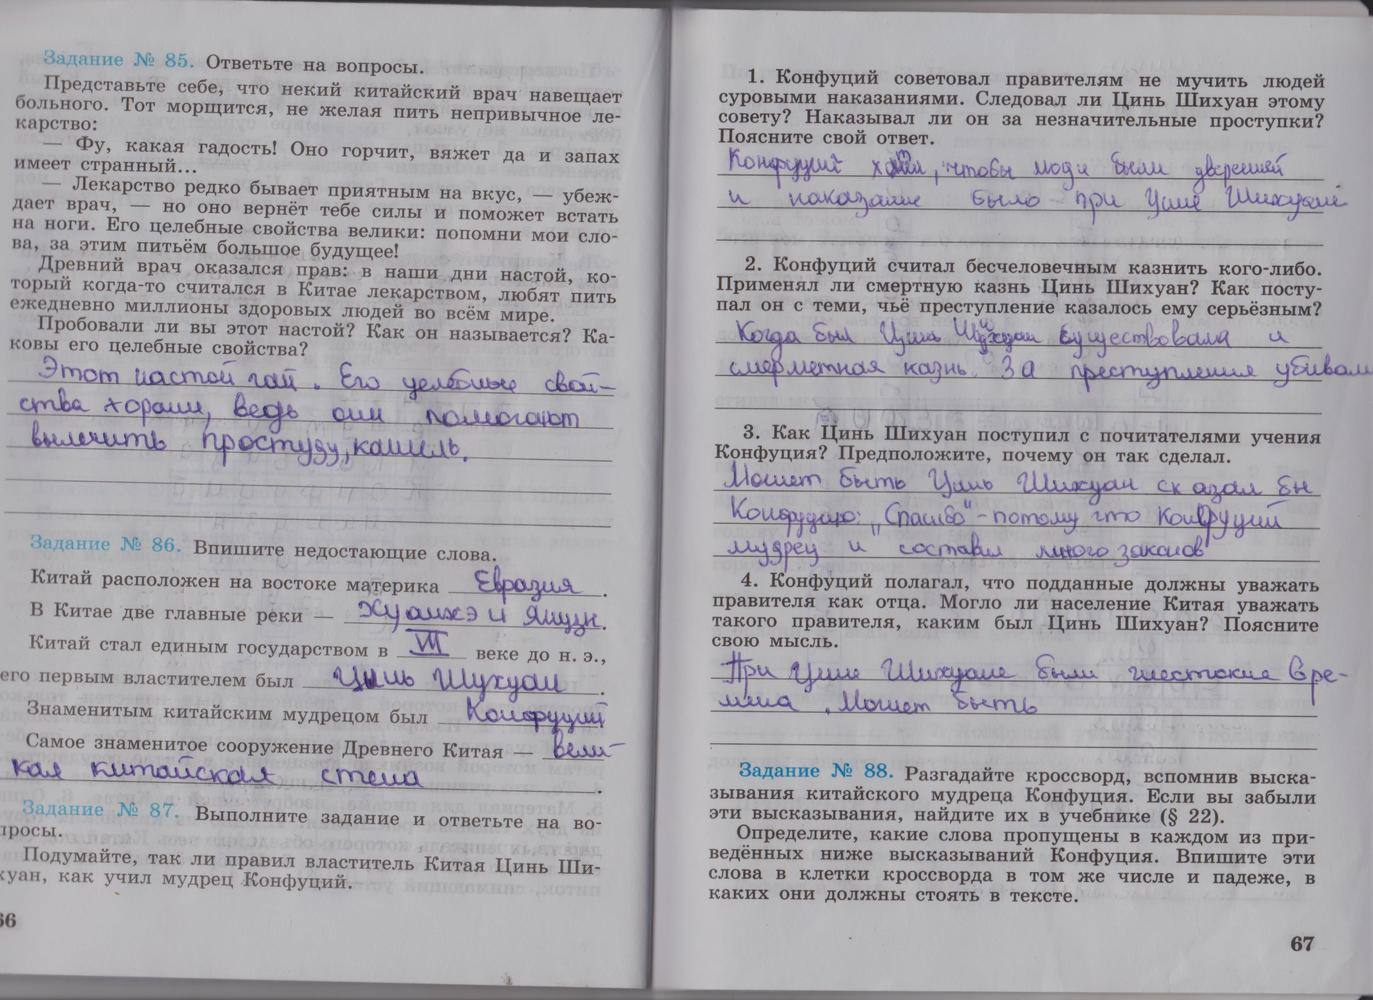 Задание № 85. Ответьте на вопросы.
Представьте себе, что некий китайский врач навещает
больного. Тот морщится, не желая пить непривычное ле-
карство:
— Фу, какая гадость! Оно горчит, вяжет да и запах
имеет странный...
— Лекарство редко бывает приятным на вкус, — убеж-
дает врач, — но оно вернёт тебе силы и поможет встать
на ноги. Его целебные свойства велики: попомни мои сло-
ва, за этим питьём большое будущее!
Древний врач оказался прав: в наши дни настой, ко-
торый когда-то считался в Китае лекарством, любят пить
ежедневно миллионы здоровых людей во всём мире.
Пробовали ли вы этот настой? Как он называется? Ка-
ковы его целебные свойства?
Этот настой чай. Его целебные свой-
ства хороши, ведь они помогают
вылечить простуду, кашель.
Задание № 86. Впишите недостающие слова.
Китай расположен на востоке материка Евразия.
В Китае две главные реки — Хуанхэ и Янцзы.
Китай стал единым государством в VII веке до н. э.,
его первым властителем был Цинь Шухуан.
Знаменитым китайским мудрецом был Конфуций
Самое знаменитое сооружение Древнего Китая — вели-
кая китайская стена.
Задание № 87. Выполните задание и ответьте на во-
просы.
Подумайте, так ли правил властитель Китая Цинь Ши-
хуан, как учил мудрец Конфуций.
66
1. Конфуций советовал правителям не мучить людей
суровыми наказаниями. Следовал ли Цинь Шихуан этому
совету? Наказывал ли он за незначительные проступки?
Поясните свой ответ.
Конфуций хотел, чтобы люди были
и наказание было при Цине Шихуане
2. Конфуций считал бесчеловечным казнить кого-либо.
Применял ли смертную казнь Цинь Шихуан? Как посту-
пал он с теми, чьё преступление казалось ему серьёзным?
Когда был Цинь Шихуан существовала и
смертельная казнь. За преступления убивали
3. Как Цинь Шихуан поступил с почитателями учения
Конфуция? Предположите, почему он так сделал.
Может быть Цинь Шихуан сказал бы
Конфуцию: „Спасибо" - потому что Конфуций
мудрец и составил много законов
4. Конфуций полагал, что подданные должны уважать
правителя как отца. Могло ли население Китая уважать
такого правителя, каким был Цинь Шихуан? Поясните
свою мысль.
При Цине Шихуане были жестокие вре-
мена. Может быть
Задание № 88. Разгадайте кроссворд, вспомнив выска-
зывания китайского мудреца Конфуция. Если вы забыли
эти высказывания, найдите их в учебнике (§ 22).
Определите, какие слова пропущены в каждом из при-
ведённых ниже высказываний Конфуция. Впишите эти
слова в клетки кроссворда в том же числе и падеже, в
каких они должны стоять в тексте.
67